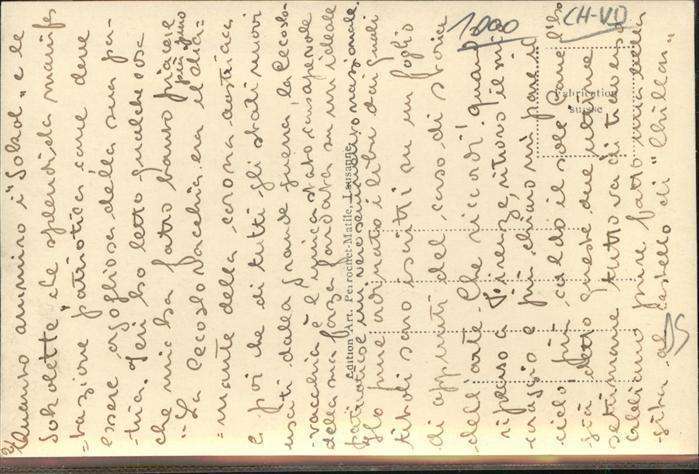 Quanto ammiro i "Sokol" e le
Sokolette che splendida manifes
=tazione patriotica come deve
essere orgogliosa della sua pa-
tria. Ieri ho letto qualche cosa
che mi ha fatto tanto piacere
"La Cecoslovacchia era il dia-
mante della corona austriaca
e poi che di tutti gli stati nuovi
usciti dalla grande guerra la Cecoslo-
vacchia è l'unico stato consapevole
della sua forza fondata su un ideale
nazionale.
Ho pure i libri dai quali
titoli sono iscritti su un foglio
di appunti del corso di storia
dell'arte. Che ricordi! quando
ripenso a Firenze, ritorno il mio
coraggio e più chiaro mi pare il
cielo, più caldo il sole. l'ho
già detto queste due ultime
settimane tutto va di traverso
Abbiamo pure fatto una bella
gita al castello di "Chillon"
Edition Art. Perrochet-Matile, Lausanne
Fabrication
suisse
1000
CH-VD
DS